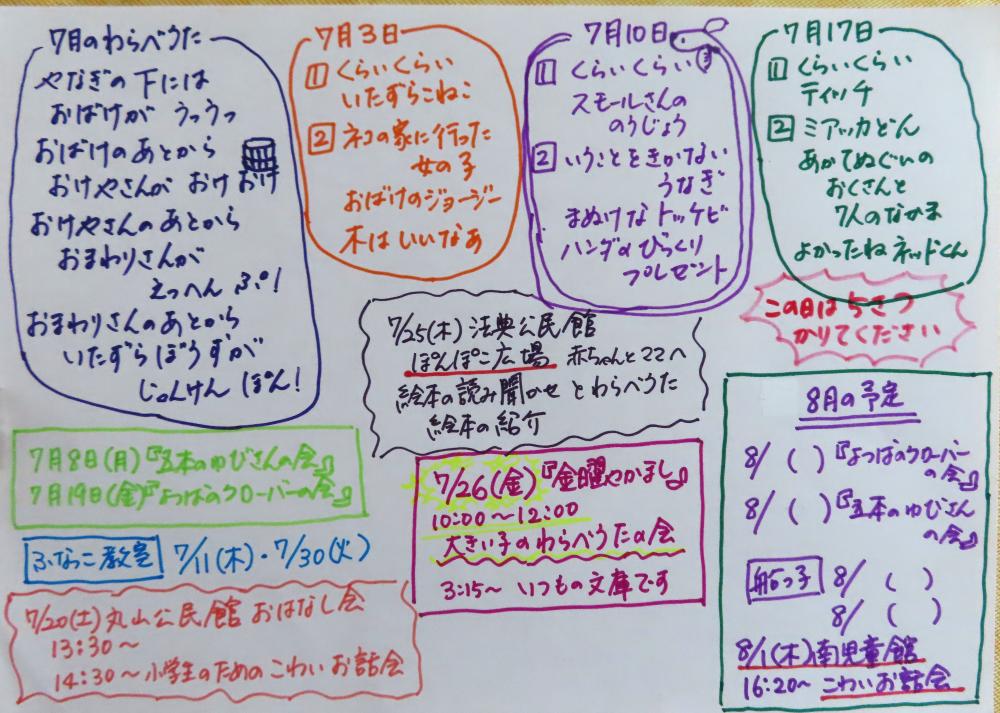 7月のわらべうた
やなぎの下には
おばけが うっうっ
おばけのあとから
おけやさんが おけ おけ
おけやさんのあとから
おまわりさんが
えっへん ぷ!
おまわりさんのあとから
いたずらぼうずが
じゃんけん ぽん!
7月3日
1 くらいくらい
いたずらこねこ
2 ネコの家に行った
女の子
おばけのジョージー
木はいいなあ
7月10日
1 くらいくらい
スモールさんの
のうじょう
2 いうことをきかない
うなぎ
まぬけなトッケビ
ハンダのびっくり
プレゼント
7月17日
1 くらいくらい
ティッチ
2 ミアッカどん
あかてぬぐいの
おくさんと
7人のなかま
よかったねネッドくん
この日は5さつ
かりてください
7/25(木)法典公民館
ぽんぽこ広場 赤ちゃんとママへ
絵本の読み聞かせ とわらべうた
絵本の紹介
7月8日(月)『五本のゆびさんの会』
7月19日(金)『よつばのクローバーの会』
ふなっこ教室 7/11(木)・7/30(火)
7/20(土)丸山公民館 おはなし会
13:30〜
14:30〜小学生のための こわいお話会
7/26(金)『金曜やかまし』
10:00〜12:00
大きい子のわらべうたの会
3:15〜 いつもの文庫です
8月の予定
8/ ( )『よつばのクローバー
の会』
8/ ( )『五本のゆびさん
の会』
船っ子 8/ ( )
8/ ( )
8/1(木)南児童館
16:20〜 こわいお話会